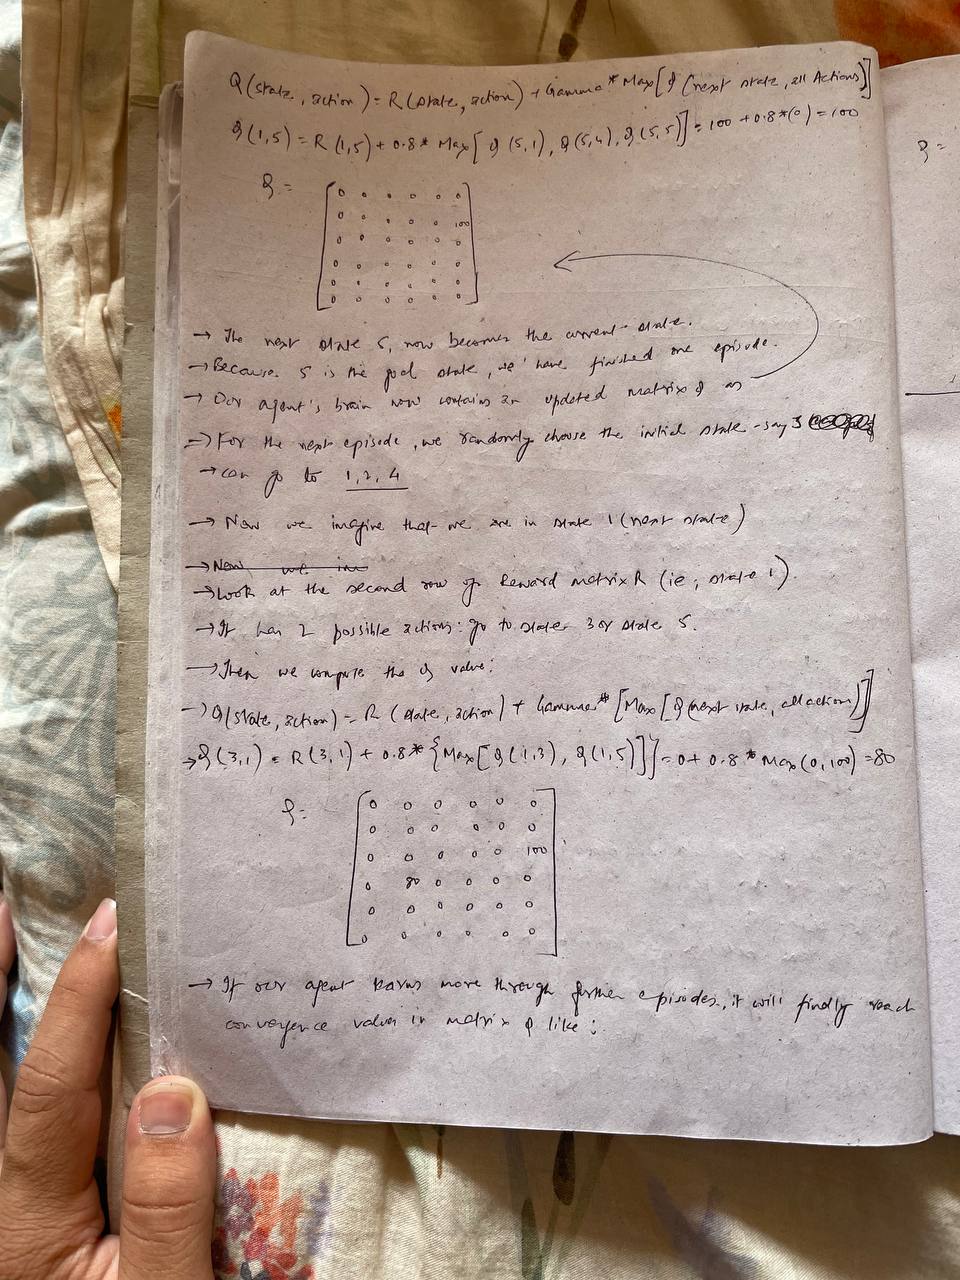 Q(state, action) = R(state, action) + Gamma * Max[Q(next state, all Actions)]
Q(1,5) = R(1,5) + 0.8 * Max[Q(5,1), Q(5,4), Q(5,5)] = 100 + 0.8*(0) = 100
Q =
0 0 0 0 0 0
0 0 0 0 0 100
0 0 0 0 0 0
0 0 0 0 0 0
0 0 0 0 0 0
0 0 0 0 0 0
→ The next state 5, now becomes the current state.
→ Because 5 is the goal state, we have finished one episode.
→ Our agent's brain now contains an updated matrix Q as
→ For the next episode, we randomly choose the initial state - say 3
→ can go to 1, 2, 4
→ Now we imagine that we are in state 1 (next state)
→ Now we im
→ Look at the second row of Reward matrix R (ie, state 1).
→ It has 2 possible actions: go to state 3 or state 5.
→ Then we compute the Q value:
→ Q(state, action) = R(state, action) + Gamma * [Max[Q(next state, all action)]]
→ Q(3,1) = R(3,1) + 0.8 * {Max[Q(1,3), Q(1,5)]} = 0 + 0.8 * Max(0, 100) = 80
Q =
0 0 0 0 0 0
0 0 0 0 0 0
0 0 0 0 0 100
0 80 0 0 0 0
0 0 0 0 0 0
0 0 0 0 0 0
→ If our agent learns more through further episodes, it will finally reach
convergence values in matrix Q like :
Q =